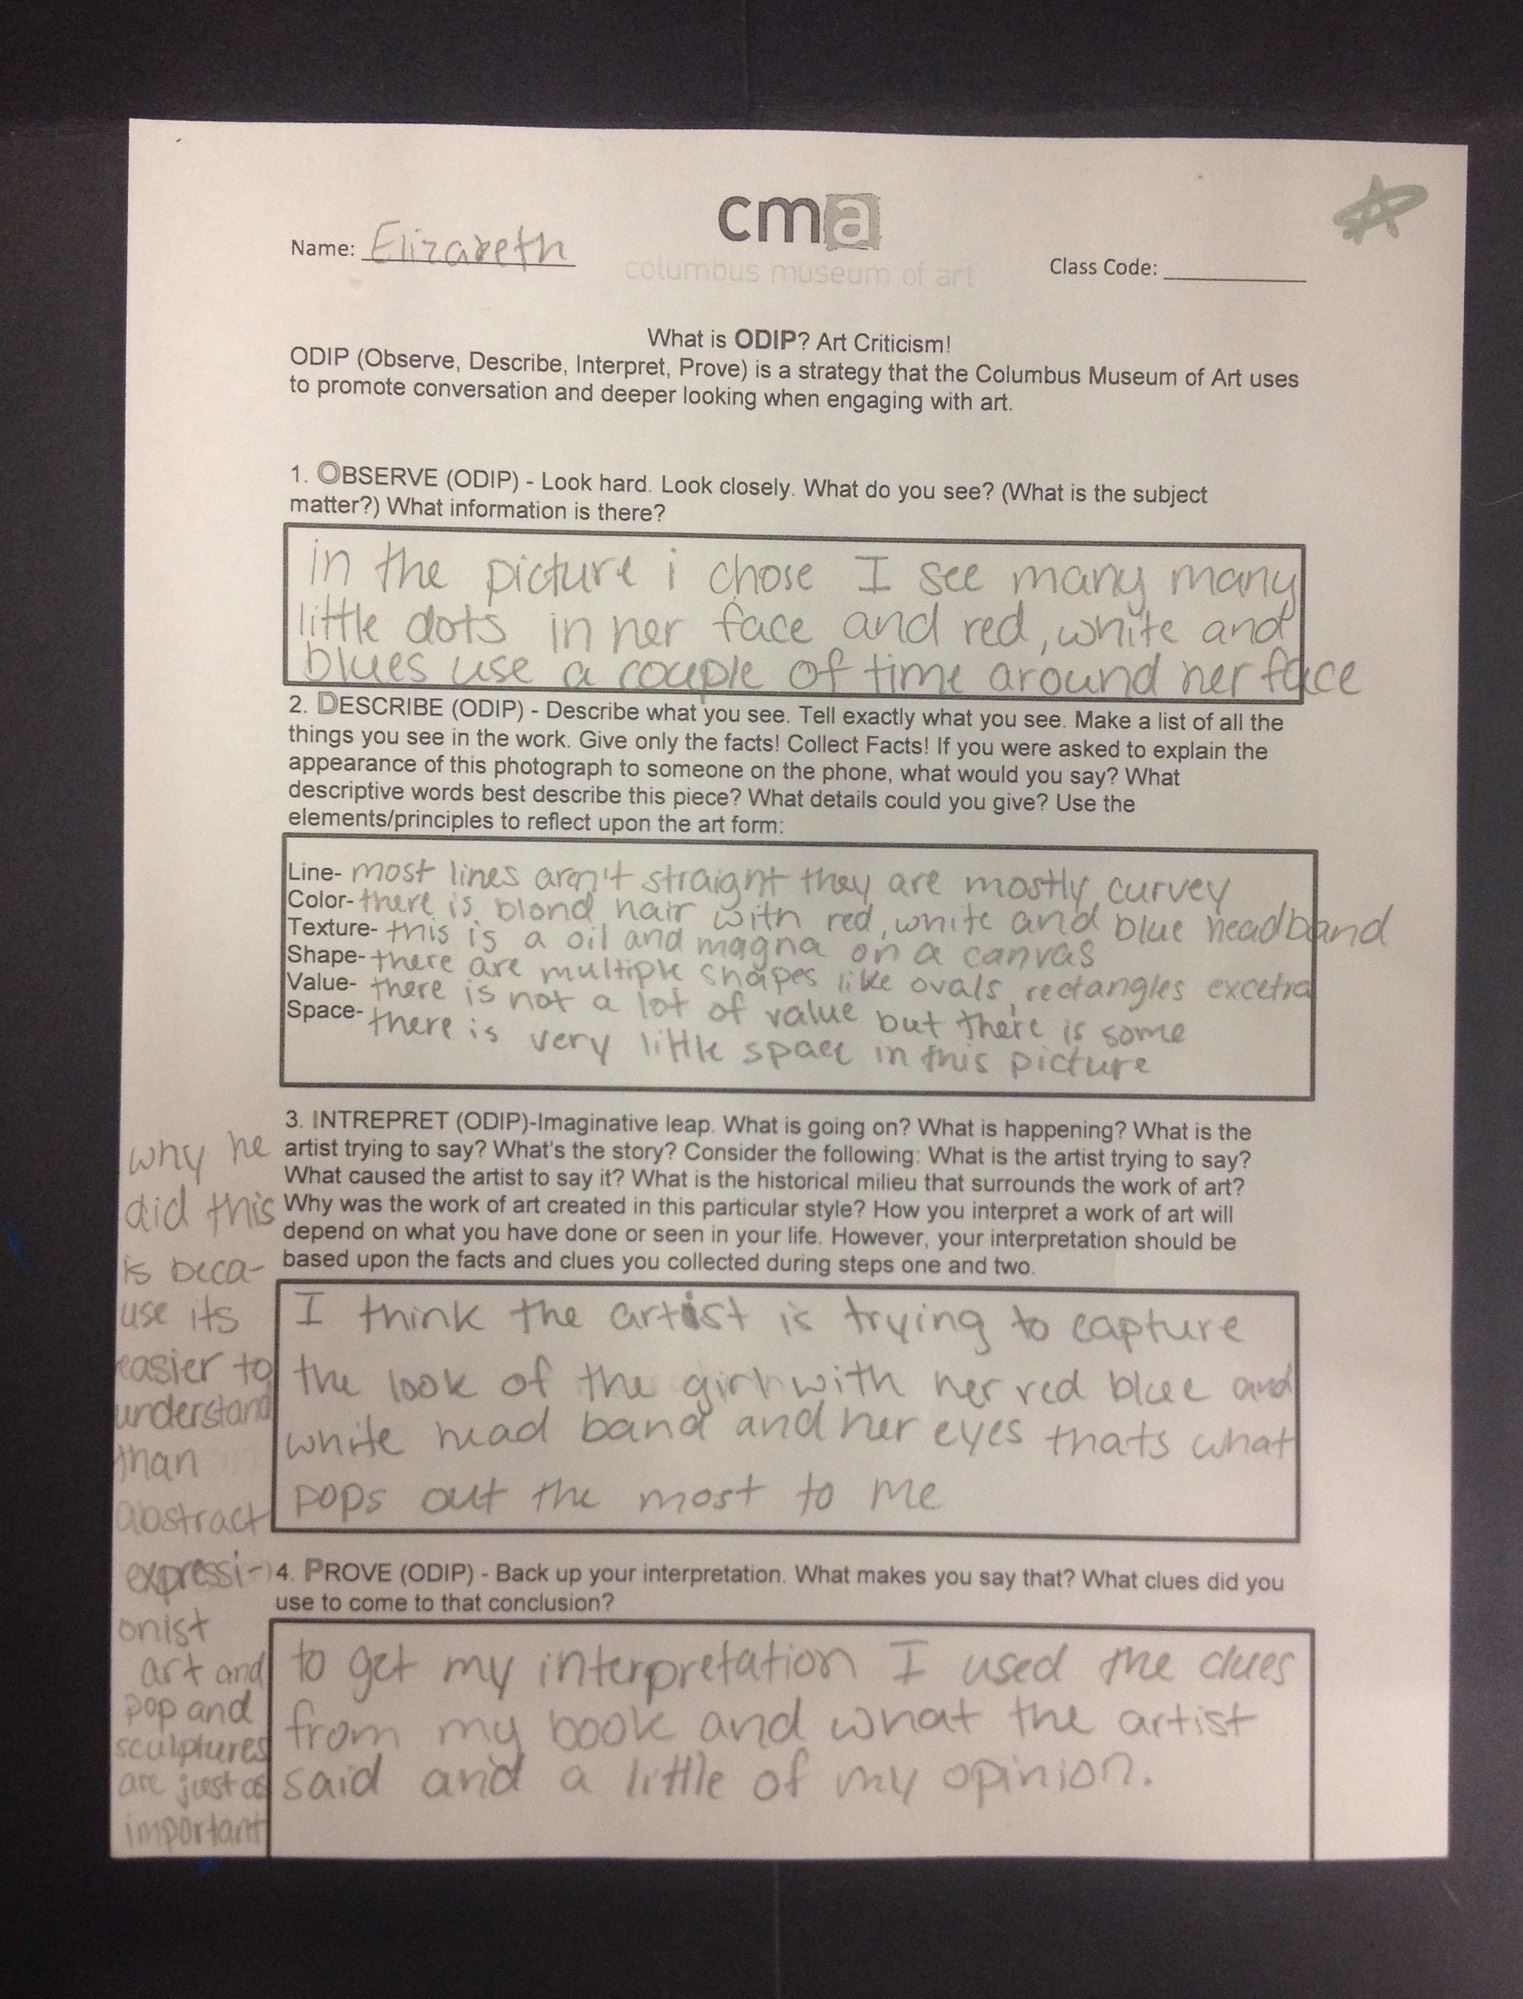 cma
columbus museum of art
Name: Elizabeth
Class Code:
What is ODIP? Art Criticism!
ODIP (Observe, Describe, Interpret, Prove) is a strategy that the Columbus Museum of Art uses
to promote conversation and deeper looking when engaging with art.
1. OBSERVE (ODIP) - Look hard. Look closely. What do you see? (What is the subject
matter?) What information is there?
in the picture i chose I see many many
little dots in her face and red, white and
blues use a couple of time around her face
2. DESCRIBE (ODIP) - Describe what you see. Tell exactly what you see. Make a list of all the
things you see in the work. Give only the facts! Collect Facts! If you were asked to explain the
appearance of this photograph to someone on the phone, what would you say? What
descriptive words best describe this piece? What details could you give? Use the
elements/principles to reflect upon the art form:
Line- most lines aren't straight they are mostly curvey
Color- there is blond hair with red, white and blue headband
Texture- this is a oil and magna on a canvas
Shape- there are multiple shapes like ovals, rectangles excetra
Value- there is not a lot of value but there is some
Space- there is very little space in this picture
3. INTREPRET (ODIP)-Imaginative leap. What is going on? What is happening? What is the
artist trying to say? What's the story? Consider the following: What is the artist trying to say?
What caused the artist to say it? What is the historical milieu that surrounds the work of art?
Why was the work of art created in this particular style? How you interpret a work of art will
depend on what you have done or seen in your life. However, your interpretation should be
based upon the facts and clues you collected during steps one and two.
I think the artist is trying to capture
the look of the girl with her red blue and
white head band and her eyes thats what
pops out the most to me
why he
did this
is beca-
use its
easier to
understand
than
abstract
expressi-
onist
art and
pop and
sculptures
are just as
important
4. PROVE (ODIP) - Back up your interpretation. What makes you say that? What clues did you
use to come to that conclusion?
to get my interpretation I used the clues
from my book and what the artist
said and a little of my opinion.